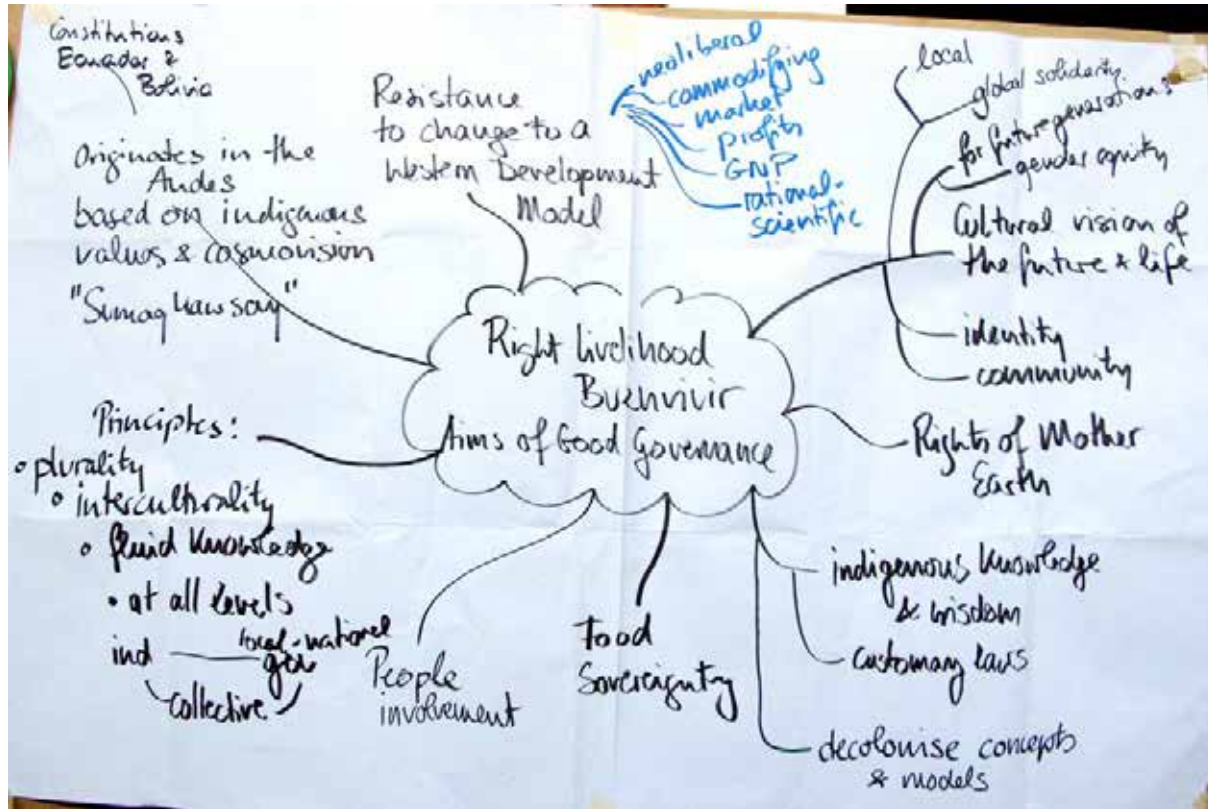 Constitutions
Ecuador &
Bolivia
Originates in the
Andes
based on indigenous
values & cosmovision
"Sumaq kawsay"
Resistance
to change to a
Western Development
Model
neoliberal
commodifying
market
profits
GNP
rational-
scientific
local
global solidarity
for future generations
gender equity
Cultural vision of
the future & life
identity
community
Right livelihood
Buenvivir
Aims of Good Governance
Rights of Mother
Earth
Principles:
• plurality
• interculturality
• fluid knowledge
• at all levels
local-national
ind
collective
People
involvement
Food
Sovereignty
indigenous knowledge
& wisdom
customary laws
decolonise concepts
& models